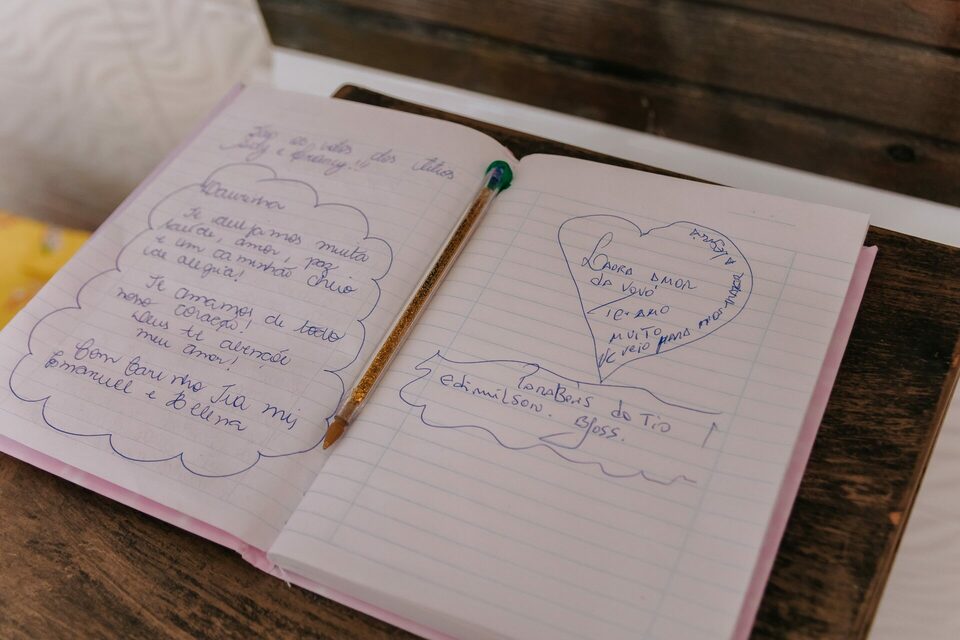 os votos dos
Laurinha
Te desejamos muita
saúde, amor, paz
e um caminhão cheio
de alegria!
Te amamos de todo
nosso coração!
Deus te abençoe
meu amor!
Com Carinho Tia mis
Emanuel e Helena
Laora Amor
da vovó
Te Amo
muito
veio para
A Alegria
ParaBens do Tio
edimilson. BJoss.